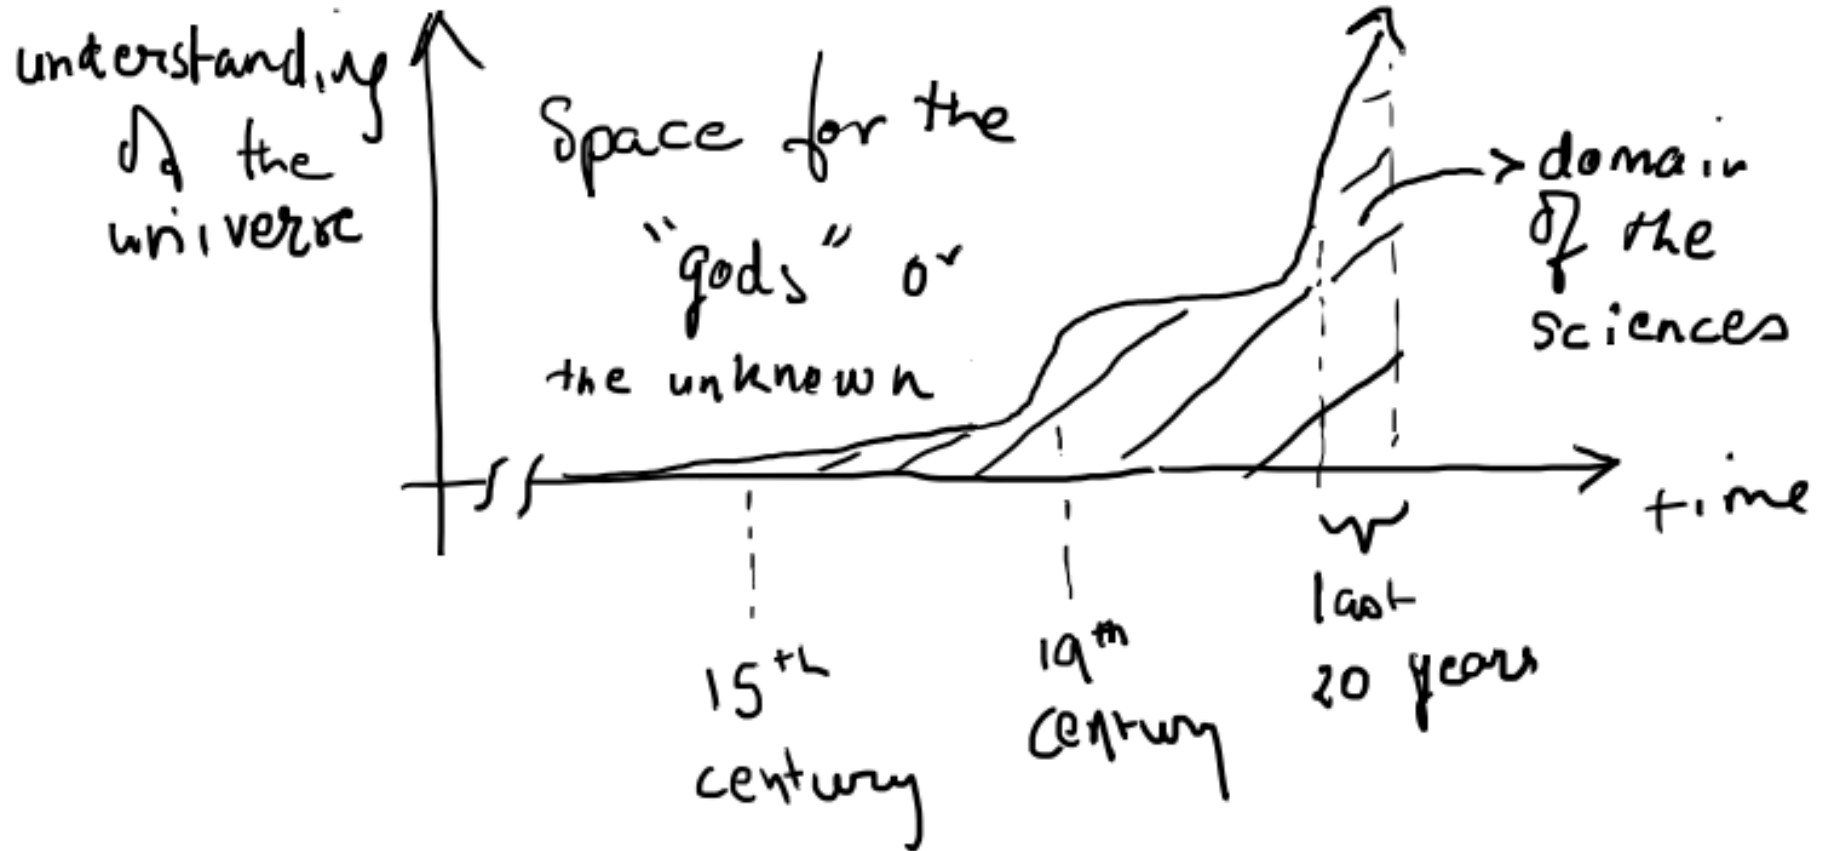 understanding
of the
universe
Space for the
"gods" or
the unknown
domain
of the
sciences
time
15th
century
19th
century
last
20 years